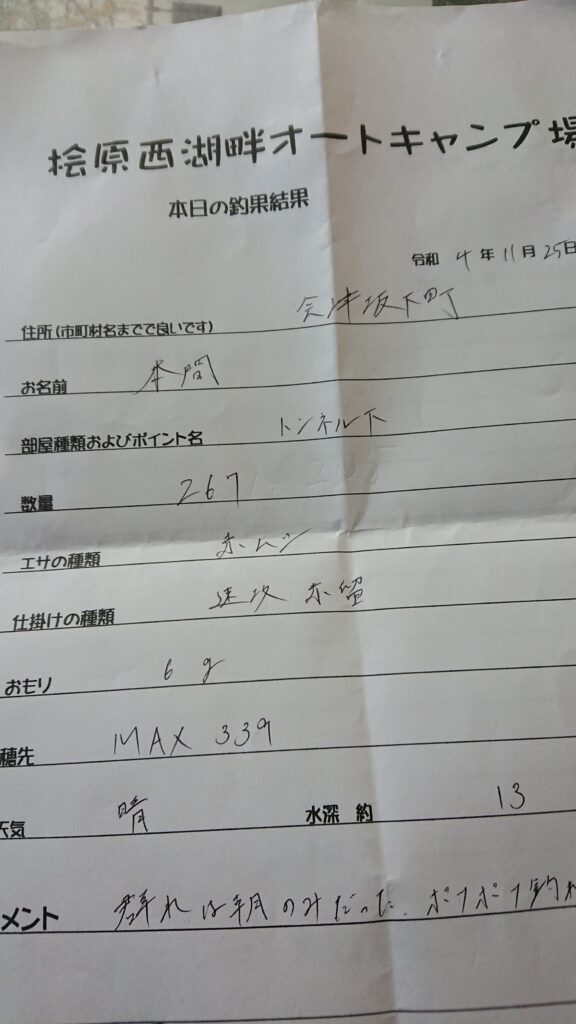 桧原西湖畔オートキャンプ場
本日の釣果結果
令和 4年11月25日
住所(市町村名までで良いです) 会津坂下町
お名前 本間
部屋種類およびポイント名 トンネル下
数量 267
エサの種類 赤ムシ
仕掛けの種類 速攻 赤留
おもり 6g
穂先 MAX 339
天気 晴 水深 約 13
メント 群れは朝のみだった、ポツポツ釣れ